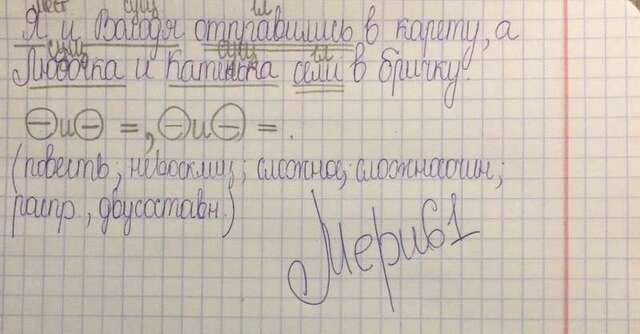 мест сущ гл
Я и Володя отправились в карету, а
сущ сущ гл
Любочка и Катинька сели в бричку.
⊖и⊖ =, ⊖и⊖ =.
(повеств; невосклиц; сложное; сложносочин;
распр., двусоставн.)
Мерив1